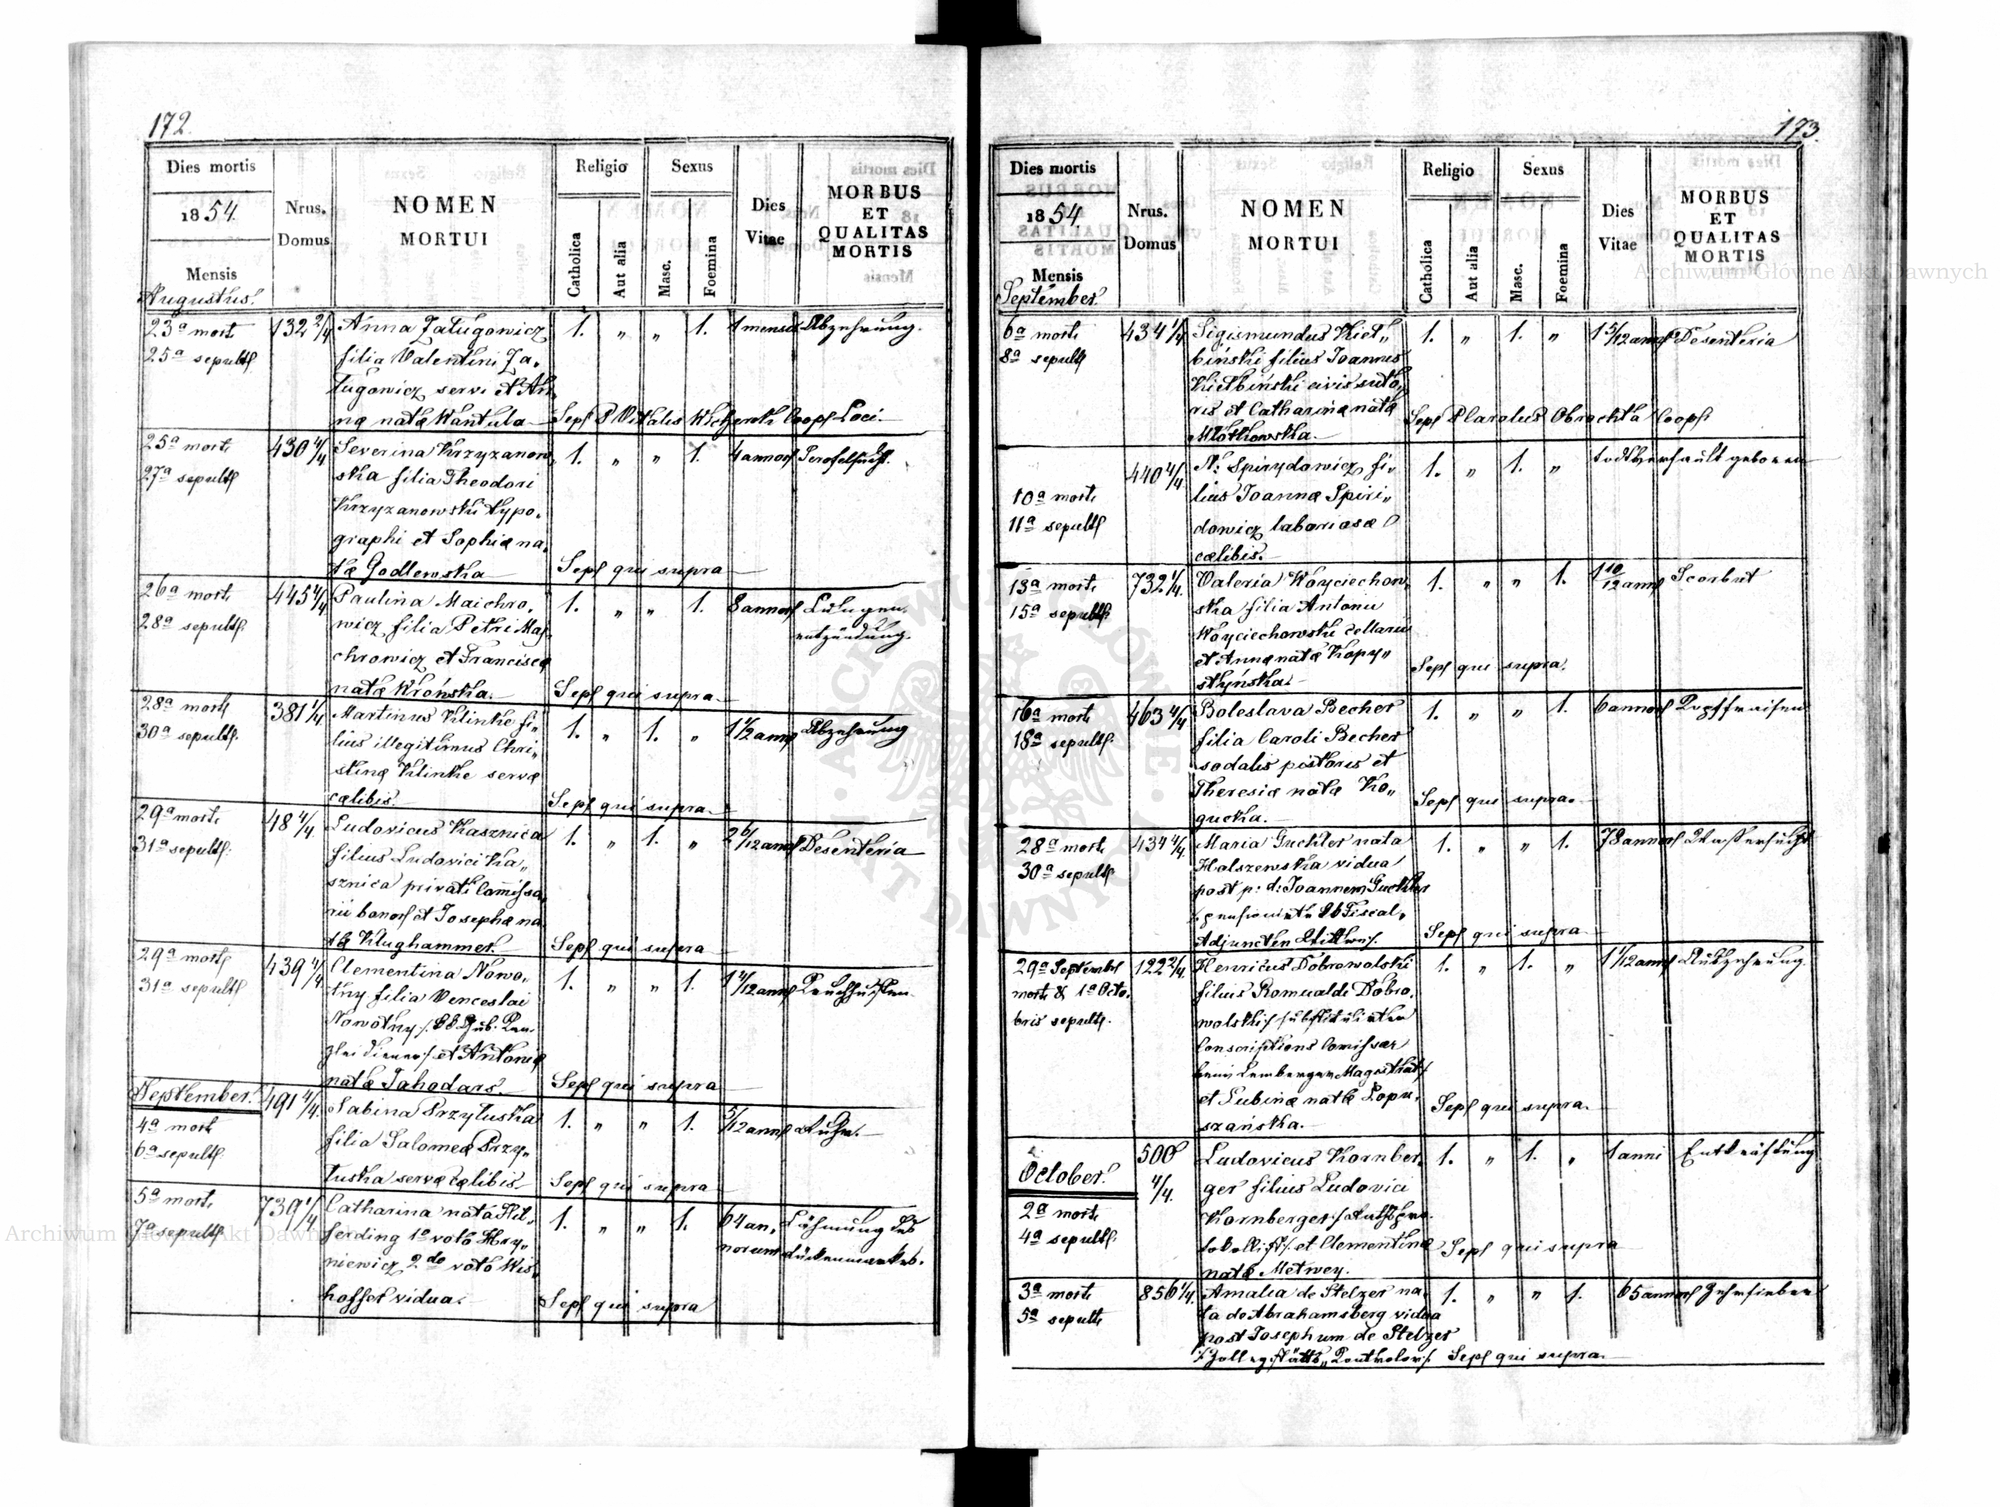 172.
Dies mortis
1854.
Mensis
Augustus.
Nrus.
Domus
NOMEN
MORTUI
Religio
Catholica
Aut alia
Sexus
Masc.
Foemina
Dies
Vitae
MORBUS
ET
QUALITAS
MORTIS
23a mort
25a sepult
132 2/4
Anna Załugowicz
filia Valentini Za-
ługowicz servi et An-
na nata Wantula
1. " " 1.
1 mensis
Abzehrung.
Sepl P Vitalis Coops Loci.
25a mort
27a sepult
430 4/4
Severina Krzyzanow-
ska filia Theodori
Krzyzanowski typo-
graphi et Sophia na-
ta Godlewska
1. " " 1.
4 annor
Sepl qui supra
26a mort
28a sepult
445 4/4
Paulina Maichro-
wicz filia Petri Maj-
chrowicz et Francisca
nata Wrońska.
1. " " 1.
8 annor
Lungen
entzündung.
Sepl qui supra
28a mort
30a sepult
381 1/4
Martinus Klinke fi-
lius illegitimus Chri-
stina Klinke serva
caelibis.
1. " 1. "
1 1/2 anni
Abzehrung
Sepl qui supra.
29a mort
31a sepult
48 4/4
Ludovicus Kasznica
filius Ludovici Ka-
sznica privati Commissa-
rii bonor et Josepha na-
ta Klughammer.
1. " 1. "
2 6/12 annor
Desenteria
Sepl qui supra
29a mort
31a sepult
439 4/4
Clementina Nowo-
tny filia Venceslai
Nowotny
et Antonia
nata Jahodars.
1. " " 1.
Keuchhusten.
Sepl qui supra
September.
4a mort
6a sepult
491 4/4
Sabina Przyłuska
filia Salomea Przy-
łuska serva caelibis
1. " " 1.
5/12 anni
Ruhr.
Sepl qui supra
5a mort
7a sepult
739 1/4
Catharina nata
ferding 1o voto Hry-
niewicz 2do voto Wis-
hoffer vidua.
1. " " 1.
64 an-
norum
Lähmung des
Rückenmarkes.
Sepl qui supra
173.
Dies mortis
1854
Mensis
September.
Nrus.
Domus
NOMEN
MORTUI
Religio
Catholica
Aut alia
Sexus
Masc.
Foemina
Dies
Vitae
MORBUS
ET
QUALITAS
MORTIS
6a mort
8a sepult
434 1/4
Sigismundus Kieł-
biński filius Joannis
Kiełbiński civis suto-
ris et Catharina nata
Młotkowska.
1. " 1. "
1 5/12 anni
Desenteria
Sepl P Carolus Obrochta Coops
10a mort
11a sepult
440 4/4
N: Spirydowicz fi-
lius Joanna Spiri-
dowicz laboriosa
caelibis.
1. " 1. "
geboren
13a mort
15a sepult
732 1/4
Valeria Woyciechow-
ska filia Antonii
Woyciechowski cellarii
et Anna nata Kopy-
styńska.
1. " " 1.
1 10/12 anni
Scorbut
Sepl qui supra.
16a mort
18a sepult
463 4/4
Boleslava Becher
filia Caroli Becher
sodalis pistoris et
Theresia nata Ko-
gucka.
1. " " 1.
6 annor
Kopffraisen
Sepl qui supra.
28a mort
30a sepult
434 4/4
Maria Guckler nata
Holszewska vidua
post p: d: Joannem Guckler
Fiscal-
Adjuncten Wittwe
1. " " 1.
78 annor
Wassersucht
Sepl qui supra
29a September
mort & 1a Octo-
bris sepult.
122 2/4
Henricus Dobrowolski
filius Romualdi Dobro-
wolski substituirten
Conscriptions Comissar
beim Lemberger Magistrat
et Lubina nata Lopu-
szańska.
1. " 1. "
Abzehrung.
Sepl qui supra.
October.
2a mort
4a sepult
500
4/4.
Ludovicus Kornber-
ger filius Ludovici
Kornberger
et Clementina
nata Metwey.
1. " 1. "
1 anni
Entkräftung
Sepl qui supra
3a mort
5a sepult
856 1/4
Amalia de Stelzer na-
ta de Abrahamsberg vidua
post Josephum de Stelzer
1. " " 1.
65 annor
Zehrfieber
Sepl qui supra.
Archiwum Główne Akt Dawnych
Archiwum Główne Akt Dawnych
ARCHIWUM GŁÓWNE AKT DAWNYCH